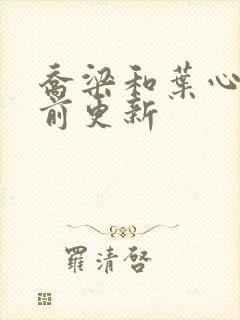 喬梁和葉心
前更新
羅清啓